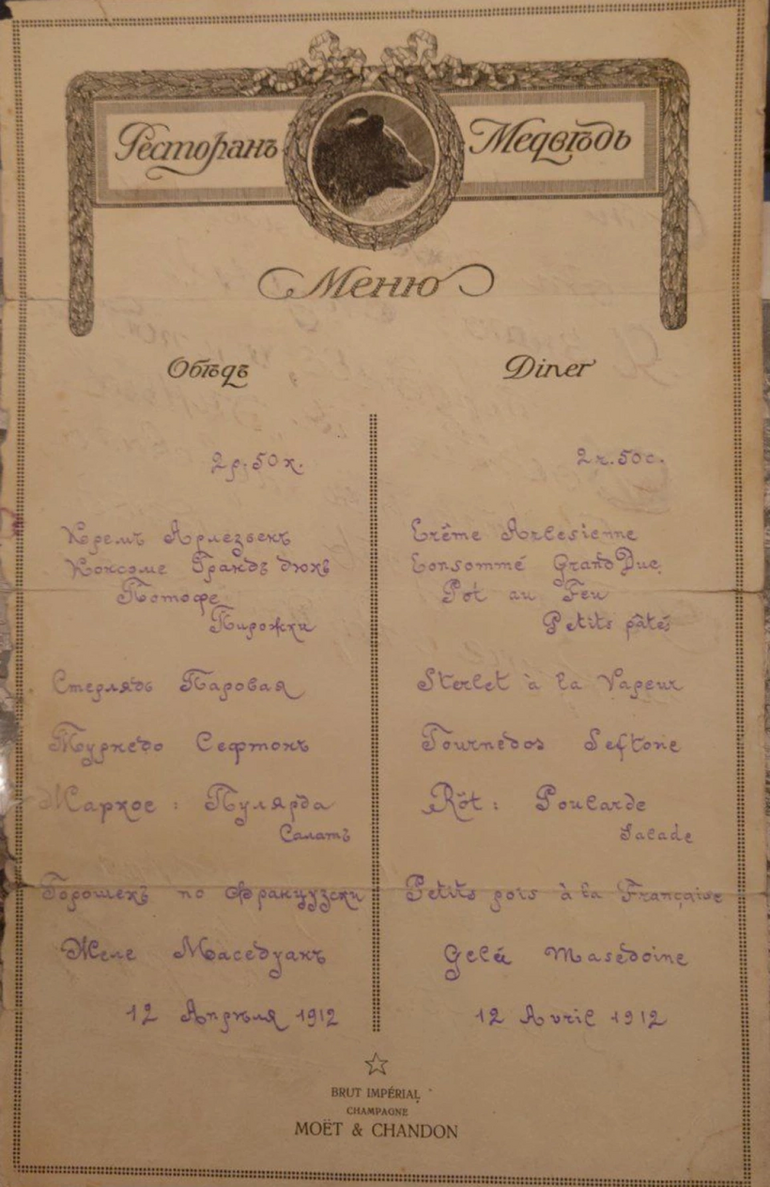 Ресторанъ Медвѣдь
Меню
Обѣдъ
2 р. 50 к.
Кремъ Арлезьенъ
Консоме Грандъ дюкъ
Потофе
Пирожки
Стерлядь Паровая
Турнедо Сефтонъ
Жаркое: Пулярда
Салатъ
Горошекъ по Французски
Желе Маседуанъ
12 Апрѣля 1912
Diner
2 r. 50 c.
Crême Arlesienne
Consommé Grand Duc
Pot au Feu
Petits pâtés
Sterlet à la Vapeur
Tournedos Seftone
Rôt: Poularde
Salade
Petits pois à la Française
Gelé Masedoine
12 Avril 1912
BRUT IMPÉRIAL
CHAMPAGNE
MOËT & CHANDON